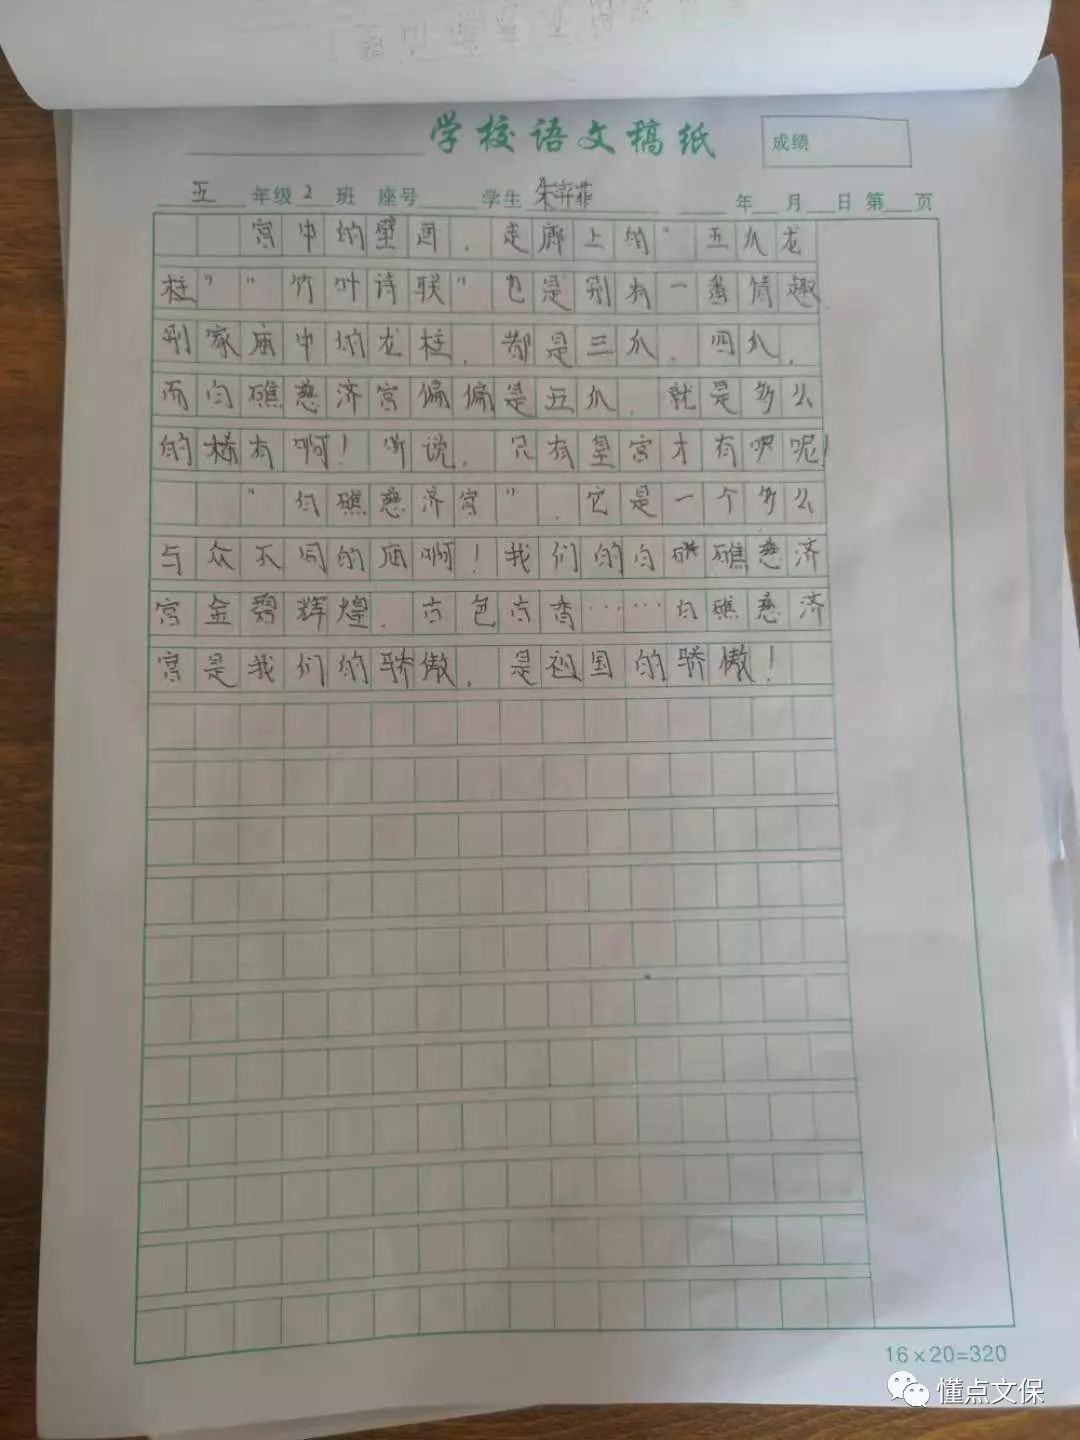 学校语文稿纸
成绩
五年级2班 座号 学生 朱弈菲 年 月 日 第 页
宫中的壁画，走廊上的“五爪龙
柱”“竹叶诗联”也是别有一番情趣
别家庙中的龙柱，都是三爪、四爪，
而白礁慈济宫偏偏是五爪，就是多么
的稀有啊！听说，只有皇宫才有呢！
“白礁慈济宫”，它是一个多么
与众不同的庙啊！我们的白礁慈济
宫金碧辉煌、古色古香……白礁慈济
宫是我们的骄傲，是祖国的骄傲！
16×20=320
懂点文保